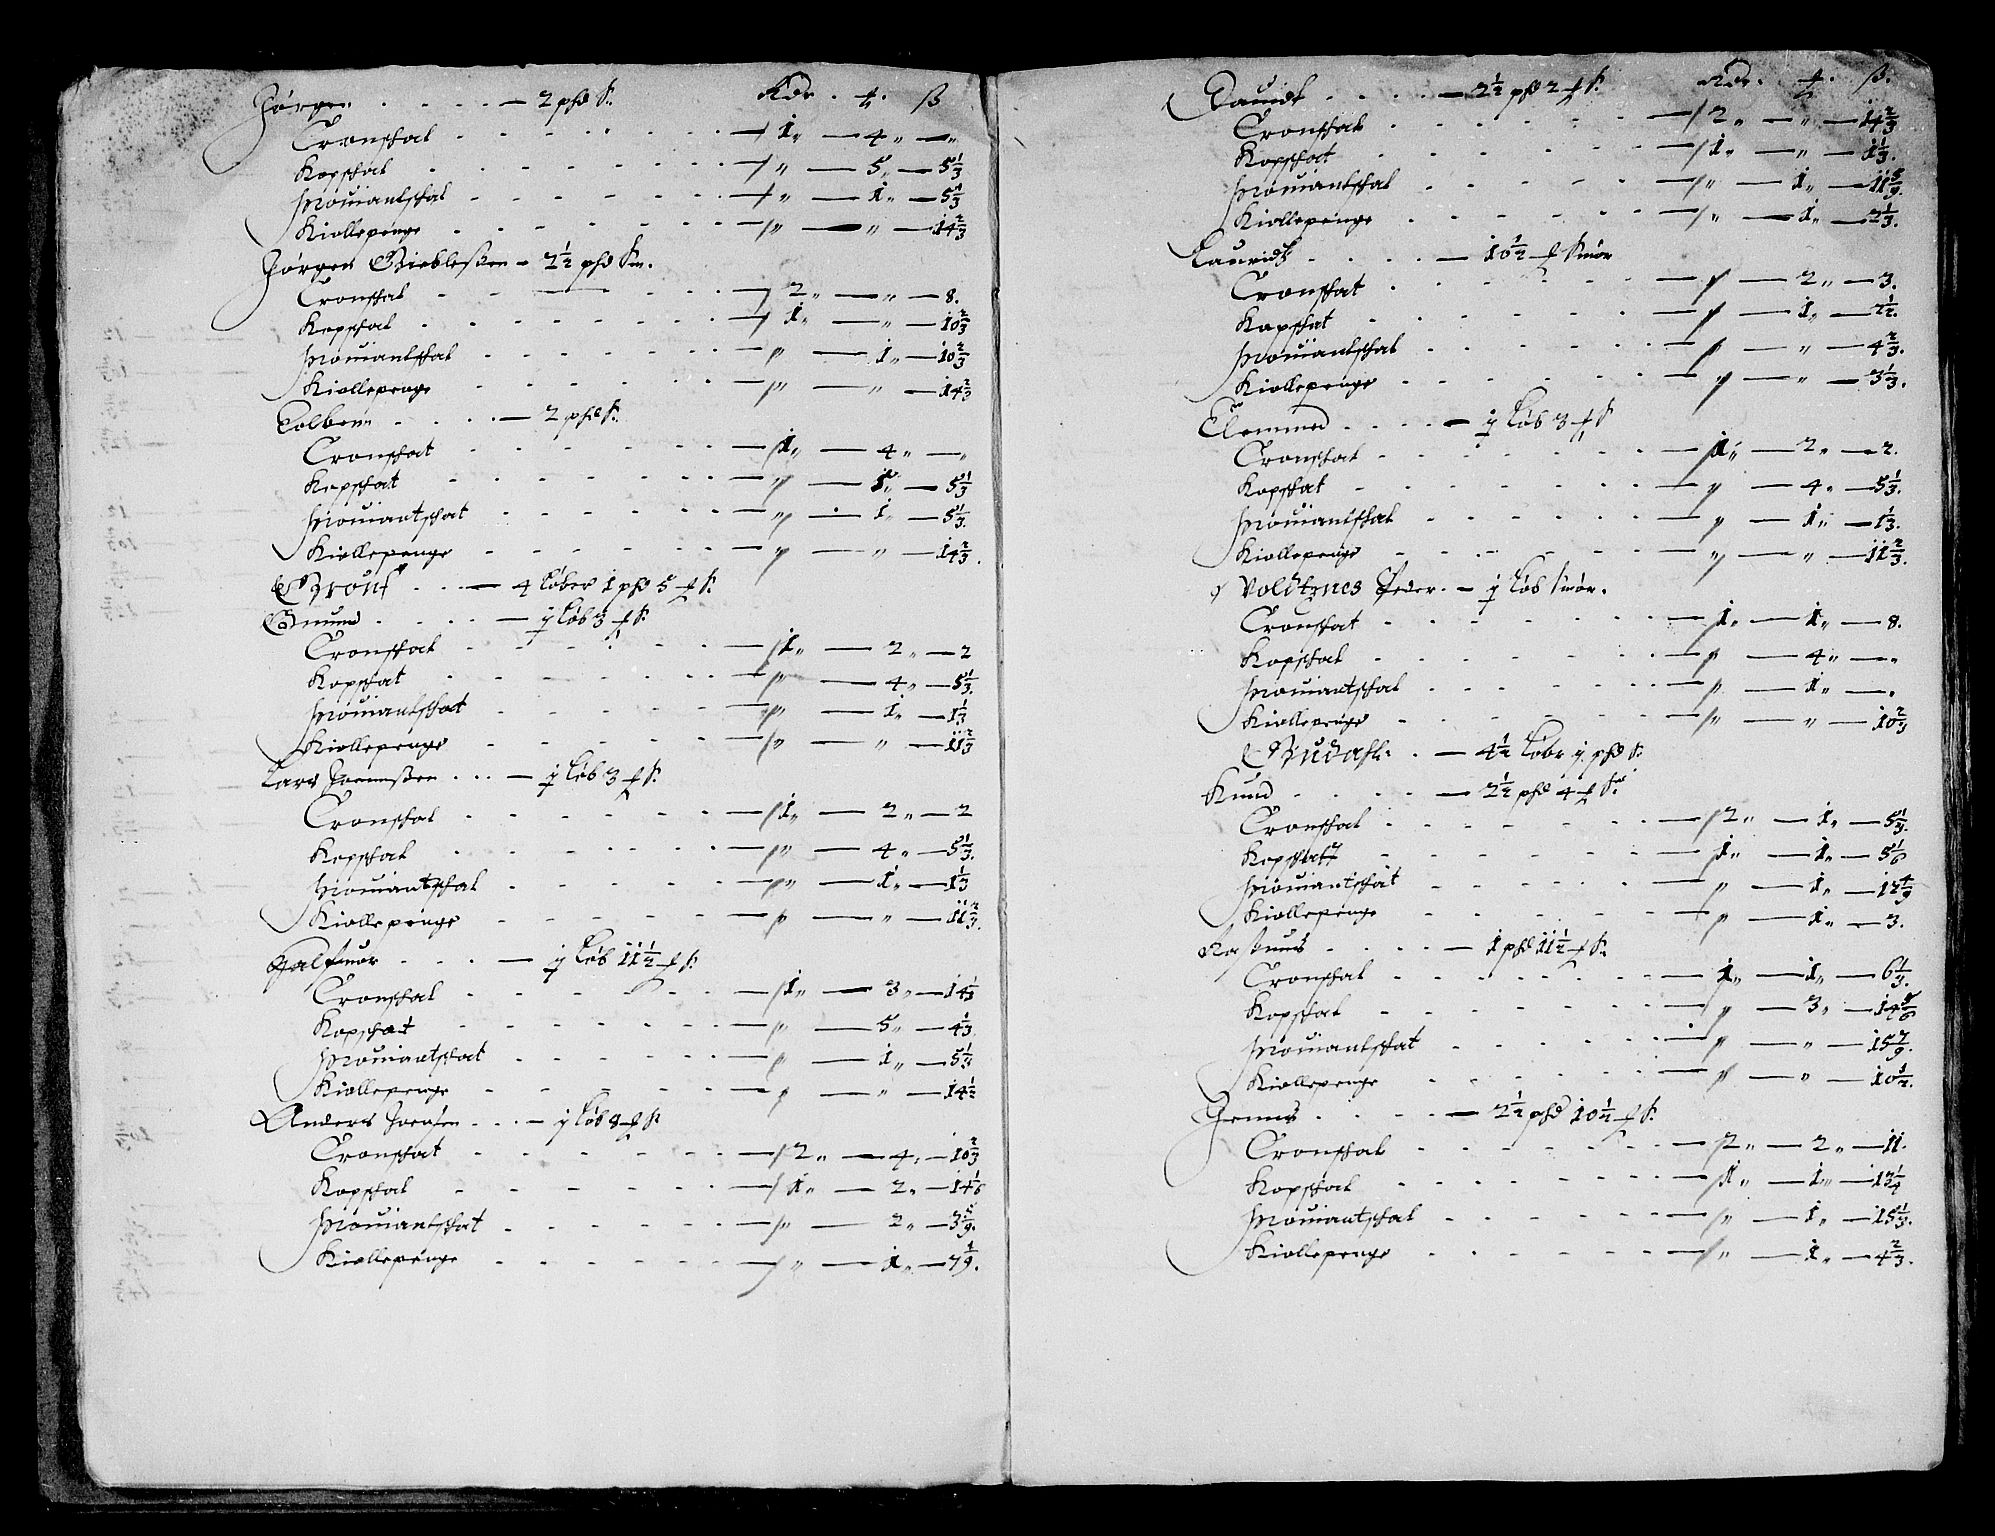 Jørgen . . . . — 2 phd S. Rdr . ₰ . ß
Cronschat . . . . . . — 1 „ — 4 „ — „
Kopschat . . . . . . — „ — 5 „ — 5 1/3
Prouiantschat . . . . . . — „ — 1 „ — 5 1/3
Kiollepenge . . . . . . — „ — „ — 14 2/3
Jørgen — 2 1/2 phd Sm.
Cronschat . . . . . . — 2 „ — „ — 8.
Kopschat . . . . . . — 1 „ — „ — 10 2/3
Prouiantschat . . . . . . — „ — 1 „ — 10 2/3
Kiollepenge . . . . . . — „ — „ — 14 2/3
Colben . . . . — 2 phd S.
Cronschat . . . . . . — 1 „ — 4 „ — „
Kopschat . . . . . . — „ — 5 „ — 5 1/3
Prouiantschat . . . . . . — „ — 1 „ — 5 1/3.
Kiollepenge . . . . . . — „ — „ — 14 2/3.
. . . — 4 Løber 1 phd 5 ₰ S.
Gunnd . . . . — j Løb 3 ₰ S.
Cronschat . . . . . . — 1 „ — 2 „ — 2
Kopschat . . . . . . — „ — 4 „ — 5 1/3.
Prouiantschat . . . . . . — „ — 1 „ — 1 1/3
Kiollepenge . . . . . . — „ — „ — 11 2/3
Lars . . . — j Løb 3 ₰ S.
Cronschat . . . . . . — 1 „ — 2 „ — 2
Kopschat . . . . . . — „ — 4 „ — 5 1/3.
Prouiantschat . . . . . . — „ — 1 „ — 1 1/3
Kiollepenge . . . . . . — „ — „ — 11 2/3.
Halfuor . . . . — j Løb 11 1/2 ₰ S.
Cronschat . . . . . . — 1 „ — 3 „ — 14 1/3
Kopschat . . . . . . — „ — 5 „ — 4 1/3.
Prouiantschat . . . . . . — „ — 1 „ — 5 1/4
Kiollepenge . . . . . . — „ — „ — 14 1/2
Anders . . . — j Løb 8 ₰ S.
Cronschat . . . . . . — 2 „ — 4 „ — 10 2/3
Kopschat . . . . . . — 1 „ — 2 „ — 14 1/6
Prouiantschat . . . . . . — „ — 2 „ — 3 5/9.
Kiollepenge . . . . . . — „ — 1 „ — 7 1/9.
Lauridt . . . . — 2 1/2 phd 2 ₰ S. Rdr . ₰ . ß.
Cronschat . . . . . . — 2 „ — „ — 14 2/3
Kopschat . . . . . . — 1 „ — „ — 1 1/3.
Prouiantschat . . . . . . — „ — 1 „ — 11 5/9.
Kiollepenge . . . . . . — „ — 1 „ — 2 1/3.
Lauridtz . . . . — 10 1/2 ₰ Smør
Cronschat . . . . . . — „ — 2 „ — 3.
Kopschat . . . . . . — „ — 1 „ — 2 1/2.
Prouiantschat . . . . . . — „ — „ — 4 2/3.
Kiollepenge . . . . . . — „ — „ — 3 1/3.
Clemmed . . . . — j Løb 3 ₰ S
Cronschat . . . . . . — 1 „ — 2 „ — 2.
Kopschat . . . . . . — „ — 4 „ — 5 1/3.
Prouiantschat . . . . . . — „ — 1 „ — 1 1/3.
Kiollepenge . . . . . . — „ — „ — 11 2/3.
Voldtnes Peder . — j Løb Smør.
Cronschat . . . . . . — 1 „ — 1 „ — 8.
Kopschat . . . . . . — „ — 4 „ — „
Prouiantschat . . . . . . — „ — 1 „ — .
Kiollepenge . . . . . . — „ — „ — 10 2/3
. — 4 1/2 Løbr j phd S.
Knud . . . . — 2 1/2 phd 4 ₰ S.
Cronschat . . . . . . — 2 „ — 1 „ — 5 1/3.
Kopschat . . . . . . — 1 „ — 1 „ — 5 1/6
Prouiantschat . . . . . . — „ — 1 „ — 12 4/9
Kiollepenge . . . . . . — „ — 1 „ — 3.
Rasmus . . . . — 1 phd 11 1/2 ₰ S.
Cronschat . . . . . . — 1 „ — 1 „ — 6 1/3.
Kopschat . . . . . . — „ — 3 „ — 14 5/6
Prouiantschat . . . . . . — „ — „ — 15 7/9.
Kiollepenge . . . . . . — „ — „ — 10 1/2.
Jenns . . . . — 2 1/2 phd 10 1/2 ₰ S.
Cronschat . . . . . . — 2 „ — 2 „ — 11.
Kopschat . . . . . . — 1 „ — 1 „ — 13 1/4
Prouiantschat . . . . . . — „ — 1 „ — 15 1/3.
Kiollepenge . . . . . . — „ — 1 „ — 4 2/3.